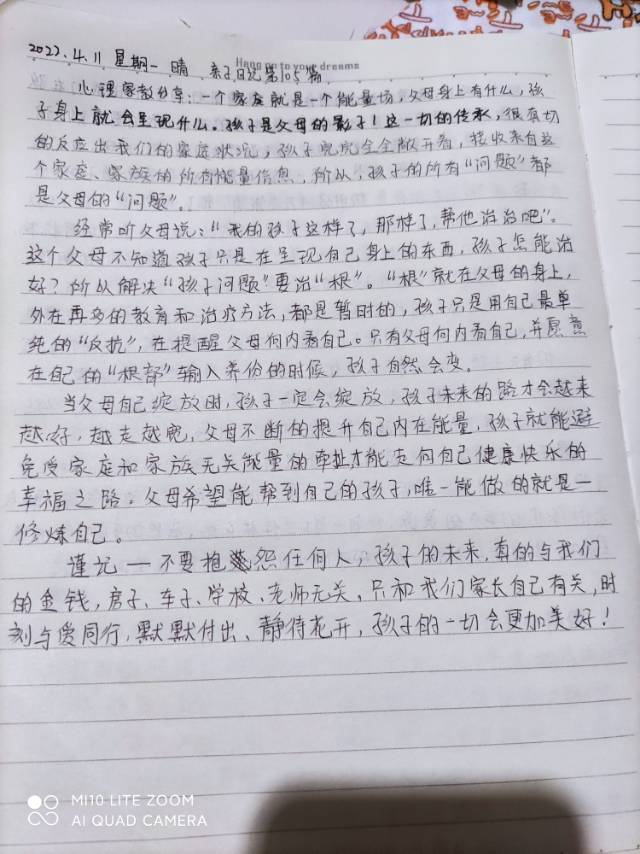 2022.4.11 星期一 晴 亲子日记第105篇
Hang on to your dreams
心理学教分享:一个家庭就是一个能量场,父母身上有什么,孩
子身上就会呈现什么。孩子是父母的影子!这一切的传承,很真切
的反应出我们的家庭状况,孩子完完全全敞开着,接收来自这
个家庭、家族的所有能量信息,所以,孩子的所有“问题”都
是父母的“问题”。
经常听父母说:“我的孩子这样了,那样了,帮他治治吧”。
这个父母不知道孩子只是在呈现自己身上的东西,孩子怎能治
好?所以解决“孩子问题”要治“根”。“根”就在父母的身上,
外在再多的教育和治疗方法,都是暂时的,孩子只是用自己最单
纯的“反抗”,在提醒父母向内看自己。只有父母向内看自己,并愿意
在自己的“根部”输入养份的时候,孩子自然会变。
当父母自己绽放时,孩子一定会绽放,孩子未来的路才会越来
越好,越走越宽,父母不断的提升自己内在能量,孩子就能避
免受家庭和家族无关能量的牵扯才能走向自己健康快乐的
幸福之路。父母希望能帮到自己的孩子,唯一能做的就是一
修炼自己。
谨记一不要抱怨任何人,孩子的未来,真的与我们
的金钱,房子、车子、学校、老师无关、只和我们家长自己有关,时
刻与爱同行,默默付出、静待花开,孩子的一切会更加美好!
MI 10 LITE ZOOM
AI QUAD CAMERA